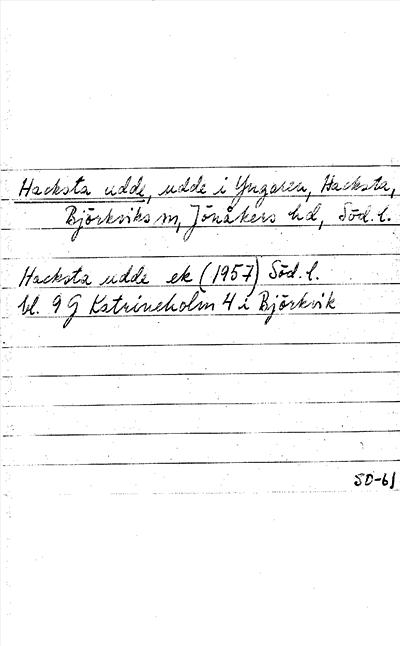 Hacksta udde, udde i Yngaren, Hacksta,
Björkviks sn, Jönåkers hd, Söd. l.
Hacksta udde ek (1957) Söd. l.
bl. 9 G Katrineholm 4 i Björkvik
SD-61